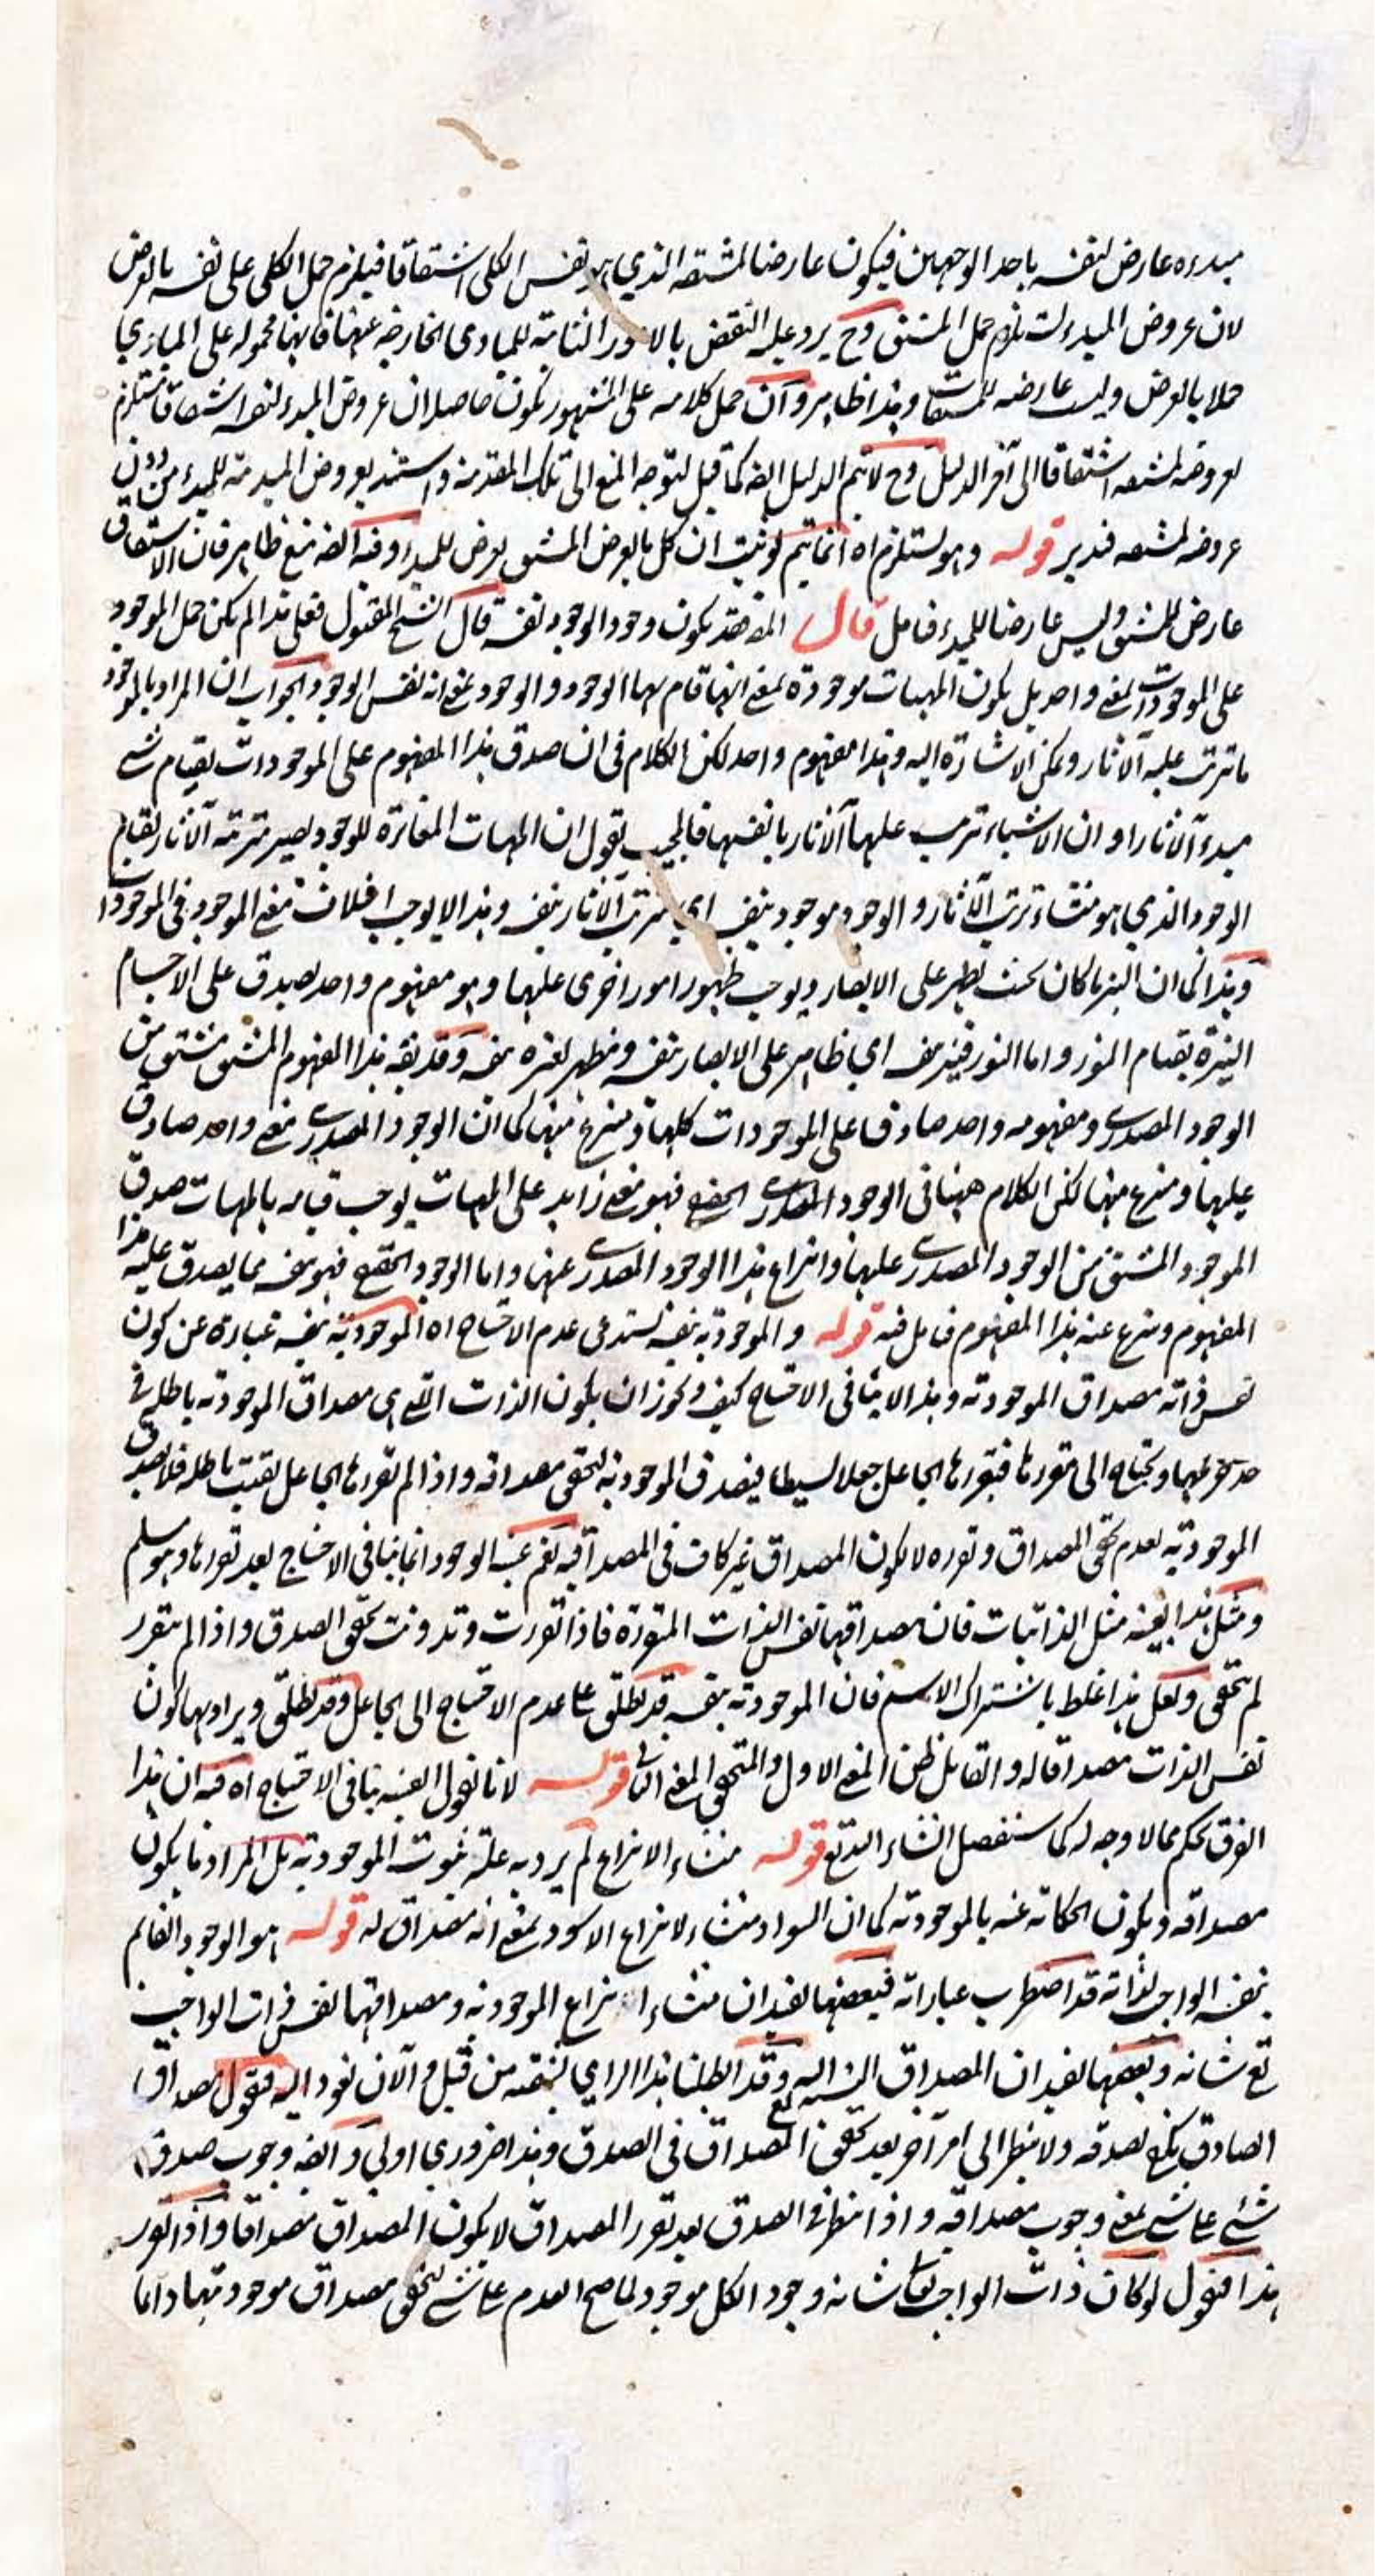 مبدءه عارض لنفسه باحد الوجهين فيكون عارضا لمشتقه الذي هو نفس الكلي اشتقاقا فيلزم حمل الكلي على نفسه بالعرض
لان عروض المبدء يستلزم حمل المشتق وح يرد عليه النقض بالامور الثابتة للمبادي الخارجة عنها فانها محمولة على المبادي
حملا بالعرض وليست عارضة للمشتقات وهذا ظاهر وان حمل كلامه على المشهور يكون حاصله ان عروض المبدء لنفسه اشتقاقا مستلزم
لعروضه لمشتقه اشتقاقا الى آخر الدليل وح لا يتم الدليل ايضه كما قيل لتوجه المنع الى تلك المقدمة واستند بعروض المبدئية للمبدء من دون
عروضه لمشتقه فتدبر قوله وهو يستلزم اه انما يتم لو ثبت ان كل ما يعرض المشتق يعرض للمبدء وفيه ايضه منع ظاهر فان الاشتقاق
عارض للمشتق وليس عارضا للمبدء فتامل قال المص فقد يكون وجود الوجود نفسه قال الشيخ المقتول فعلى هذا لم يكن حمل الموجود
على الموجودات بمعنى واحد بل يكون المهيات موجودة بمعنى انها قام بها الوجود والوجود بمعنى انه نفس الوجود والجواب ان المراد بالموجود
ما ترتب عليه الآثار ويمكن الاشارة اليه وهذا مفهوم واحد لكن الكلام في ان صدق هذا المفهوم على الموجودات بقيام شئ
مبدء الآثار او ان الاشياء ترتب عليها الآثار بانفسها فالمجيب يقول ان المهيات المغائرة للوجود يصير مترتبة الآثار بقيام
الوجود الذي هو منشاء ترتب الآثار والوجود موجود بنفسه اي مترتب الآثار بنفسه وهذا لا يوجب اختلاف معنى الموجود في الموجودات
وهذا كما ان النير ما كان بحيث يظهر على الابصار ويوجب ظهور امور اخرى عليها وهو مفهوم واحد يصدق على الاجسام
النيرة بقيام النور واما النور فنير بنفسه اي ظاهر على الابصار بنفسه ومظهر لغيره بنفسه وقد يقه هذا المفهوم المشتق مشتق من
الوجود المصدري ومفهومه واحد صادق على الموجودات كلها ومنتزع منها كما ان الوجود المصدري معنى واحد صادق
عليها ومنتزع منها لكن الكلام ههنا في الوجود المصدري الحقيقي فهو معنى زايد على المهيات يوجب قيامه بالمهيات صدق
الموجود المشتق من الوجود المصدري عليها وانتزاع هذا الوجود المصدري عنها واما الوجود الحقيقي فهو بنفسه مما يصدق عليه هذا
المفهوم وينتزع عنه هذا المفهوم فتامل فيه قوله والموجودية بنفسه تستدعى عدم الاحتياج اه الموجودية بنفسه عبارة عن كون
نفس ذاته مصداق الموجودية وهذا لا ينافى الاحتياج كيف ويجوز ان يكون الذات التي هي مصداق الموجودية باطلة في
حد جوهرها ويحتاج الى مقررها فيقررها الجاعل جعلا بسيطا فيصدق الموجودية لتحقق مصداقه واذا لم يقررها الجاعل بقيت باطلة فلا يصدق
الموجودية لعدم تحقق المصداق وتقرره لا لكون المصداق غير كاف في المصداقية نعم عينية الوجود انما ينافى الاحتياج بعد تقررها وهو مسلم
ومثل هذا بعينه مثل الذاتيات فان مصداقها نفس الذات المتقررة فاذا تقررت وتذوتت تحقق الصدق واذا لم يتقرر
لم يتحقق ولعل هذا غلط باشتراك الاسم فان الموجودية بنفسه قد يطلق على عدم الاحتياج الى الجاعل وقد يطلق ويراد بها كون
نفس الذات مصداقا له والقائل ظن المعنى الاول والمتحقق المعنى الثاني قوله لانا نقول العينية ينافى الاحتياج اه فيه ان هذا
الفرق تحكم مما لا وجه له كما سنفصل انشاء الله تع قوله منشاء الانتزاع لم يرد به علة ثبوت الموجودية بل المراد ما يكون
مصداقه ويكون الحكاية عنه بالموجودية كما ان السواد منشاء لانتزاع الاسود بمعنى انه مصداق له قوله هو الوجود القائم
بنفسه الواجب لذاته قد اضطرب عباراته فبعضها يفيد ان منشاء انتزاع الموجودية ومصداقها نفس ذات الواجب
تع شانه وبعضها يفيد ان المصداق النسبة اليه وقد ابطلنا هذا الراي بشقيه من قبل والآن نعود اليه فنقول مصداق
الصادق يكفى لصدقه ولا ينتظر الى امر آخر بعد تحقق المصداق في الصدق وهذا ضروري اولي وايضه وجوب صدق
شئ على شئ بمعنى وجوب مصداقه واذا انتظر في الصدق بعد تقرر المصداق لا يكون المصداق مصداقا واذا تقرر
هذا فنقول لو كان ذات الواجب تعالى شانه وجود الكل موجود لما صح العدم على شئ لتحقق مصداق موجوديتها دائما